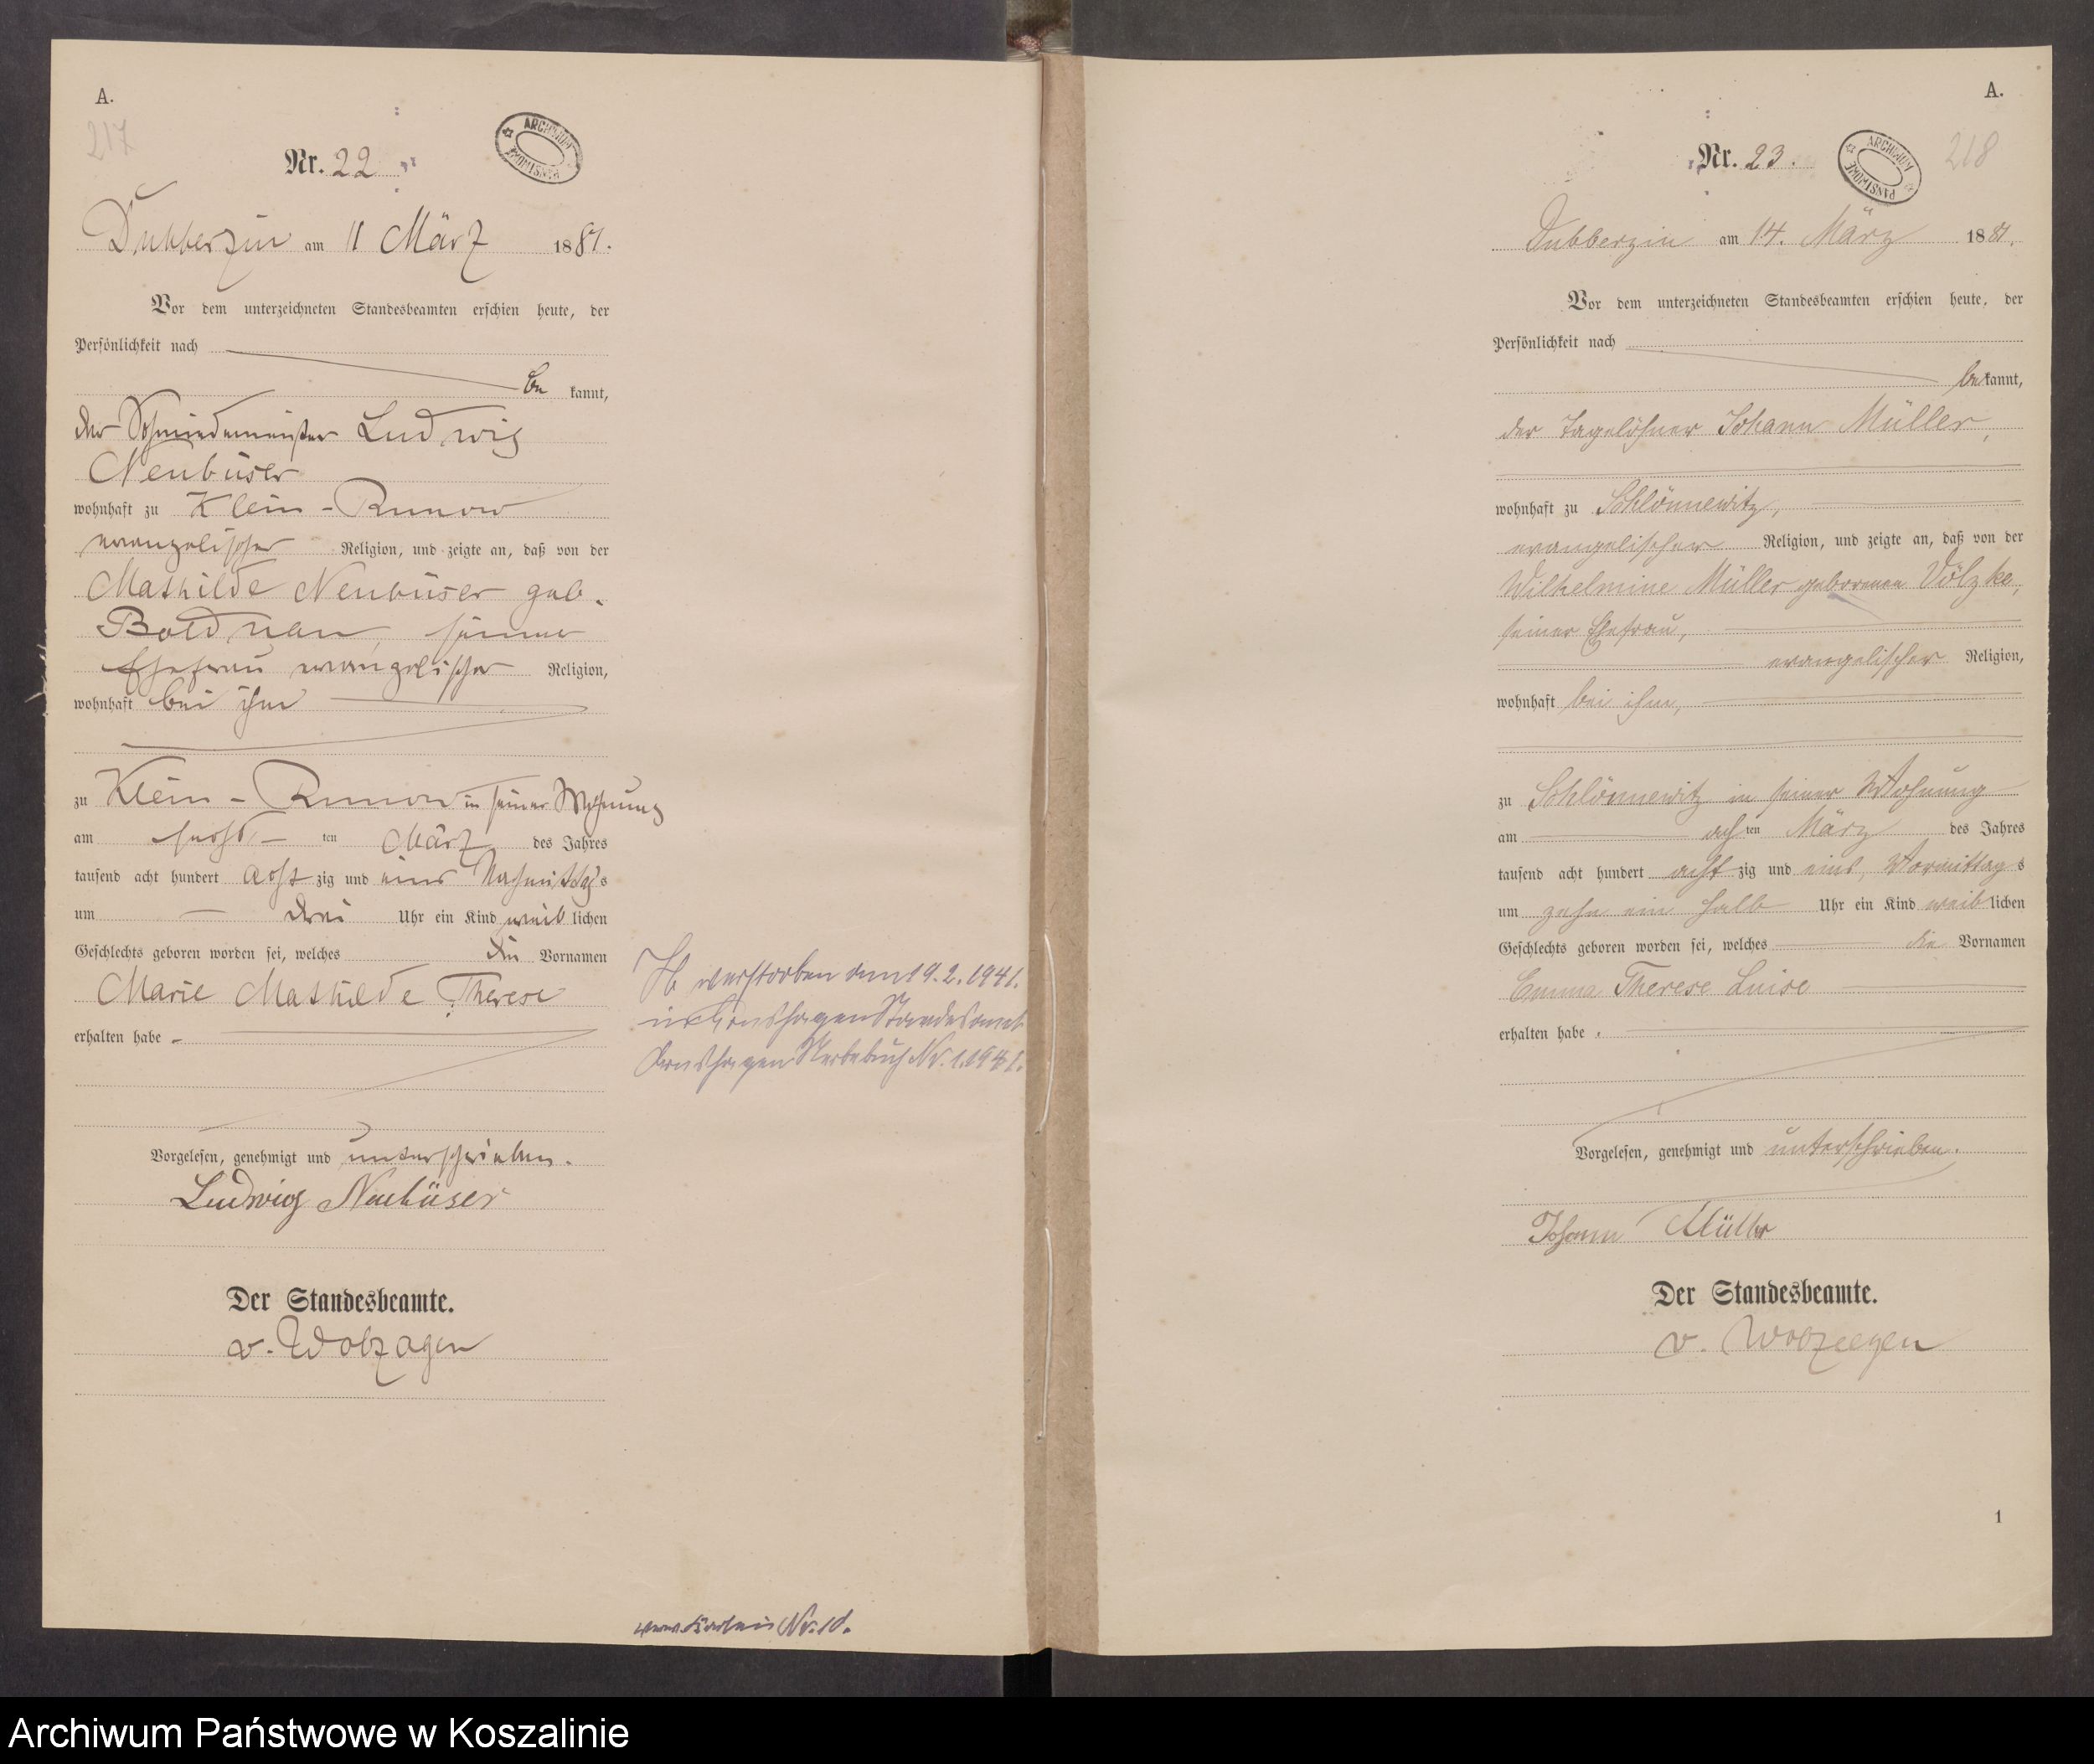 A.
217
Nr. 22
ARCHIWUM PAŃSTWOWE
Dubberzin am 11 März 1881.
Vor dem unterzeichneten Standesbeamten erschien heute, der
Persönlichkeit nach
be kannt,
der Schmiedemeister Ludwig
Neubüser
wohnhaft zu Klein-Runow
evangelischer Religion, und zeigte an, daß von der
Mathilde Neubüser geb.
seiner
Ehefrau evangelischer Religion,
wohnhaft bei ihm
zu Klein-Runow in seiner Wohnung
am sechs ten März des Jahres
tausend acht hundert acht zig und eins Nachmittags
um drei Uhr ein Kind weib lichen
Geschlechts geboren worden sei, welches die Vornamen
Marie Mathilde Therese
erhalten habe.
Vorgelesen, genehmigt und unterschrieben.
Ludwig Neubüser
Der Standesbeamte.
v. Wolzogen
verstorben am 19.2.1941.
in Arnshagen Standesamt
Arnshagen Sterbebuch Nr. 1.1941.
Nr. 10.
A.
218
Nr. 23.
ARCHIWUM PAŃSTWOWE
Dubberzin am 14. März 1881.
Vor dem unterzeichneten Standesbeamten erschien heute, der
Persönlichkeit nach
be kannt,
der Tagelöhner Johann Müller,
wohnhaft zu Schlönnewitz,
evangelischer Religion, und zeigte an, daß von der
Wilhelmine Müller geborenen Völzke,
seiner Ehefrau,
evangelischer Religion,
wohnhaft bei ihm,
zu Schlönnewitz in seiner Wohnung
am ach ten März des Jahres
tausend acht hundert acht zig und eins, Vormittag s
um zehn ein halb Uhr ein Kind weib lichen
Geschlechts geboren worden sei, welches die Vornamen
Emma Therese Luise
erhalten habe.
Vorgelesen, genehmigt und unterschrieben.
Johann Müller
Der Standesbeamte.
v. Wolzogen
1
Archiwum Państwowe w Koszalinie